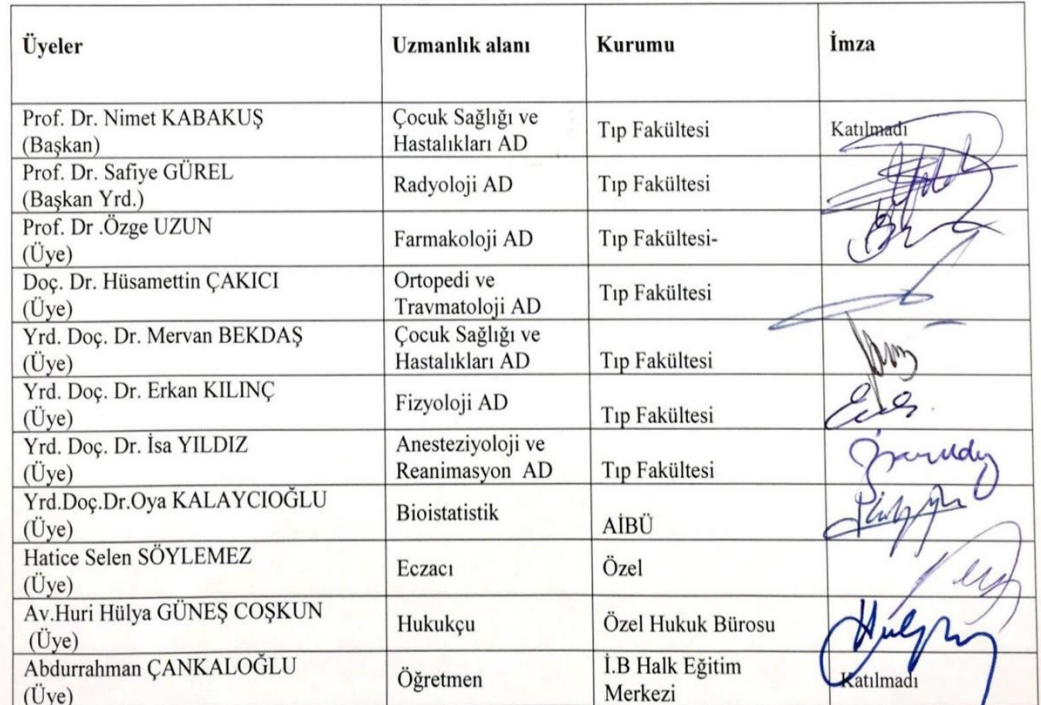 Üyeler Uzmanlık alanı Kurumu İmza
Prof. Dr. Nimet KABAKUŞ
(Başkan)
Çocuk Sağlığı ve
Hastalıkları AD
Tıp Fakültesi
Katılmadı
Prof. Dr. Safiye GÜREL
(Başkan Yrd.)
Radyoloji AD
Tıp Fakültesi
Prof. Dr .Özge UZUN
(Üye)
Farmakoloji AD
Tıp Fakültesi-
Doç. Dr. Hüsamettin ÇAKICI
(Üye)
Ortopedi ve
Travmatoloji AD
Tıp Fakültesi
Yrd. Doç. Dr. Mervan BEKDAŞ
(Üye)
Çocuk Sağlığı ve
Hastalıkları AD
Tıp Fakültesi
Yrd. Doç. Dr. Erkan KILINÇ
(Üye)
Fizyoloji AD
Tıp Fakültesi
Yrd. Doç. Dr. İsa YILDIZ
(Üye)
Anesteziyoloji ve
Reanimasyon AD
Tıp Fakültesi
Yrd.Doç.Dr.Oya KALAYCIOĞLU
(Üye)
Bioistatistik
AİBÜ
Hatice Selen SÖYLEMEZ
(Üye)
Eczacı
Özel
Av.Huri Hülya GÜNEŞ COŞKUN
(Üye)
Hukukçu
Özel Hukuk Bürosu
Abdurrahman ÇANKALOĞLU
(Üye)
Öğretmen
İ.B Halk Eğitim
Merkezi
Katılmadı